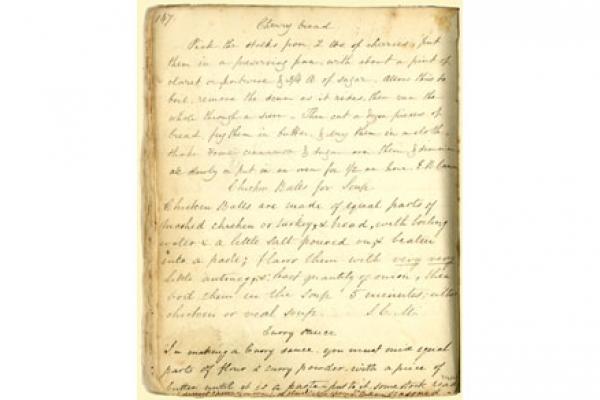 167
Cherry bread
Pick the stalks from 2 lbs of cherries, put
them in a preserving pan, with about a pint of
claret or portwine & 3/4 lb of sugar. Allow this to
boil, remove the scum as it rises, then run the
whole through a sieve. Then cut a dozen pieces of
bread fry them in butter, & dry them in a cloth.
shake some cinnamon & sugar over them &
all slowly & put in an oven for 1/2 an hour.
Chicken Balls for Soup
Chicken Balls are made of equal parts of
mashed chicken or turkey, & bread, with boiling
water & a little salt poured on, & beaten
into a paste; flavor them with very very
little nutmeg, & least quantity of onion, then
boil them in the soup 5 minutes, either
chicken or veal soup. S. C. M.
Curry sauce
In making a Curry sauce, you must mix equal
parts of flour & curry powder, with a piece of
butter until it is a paste - put to it some stock